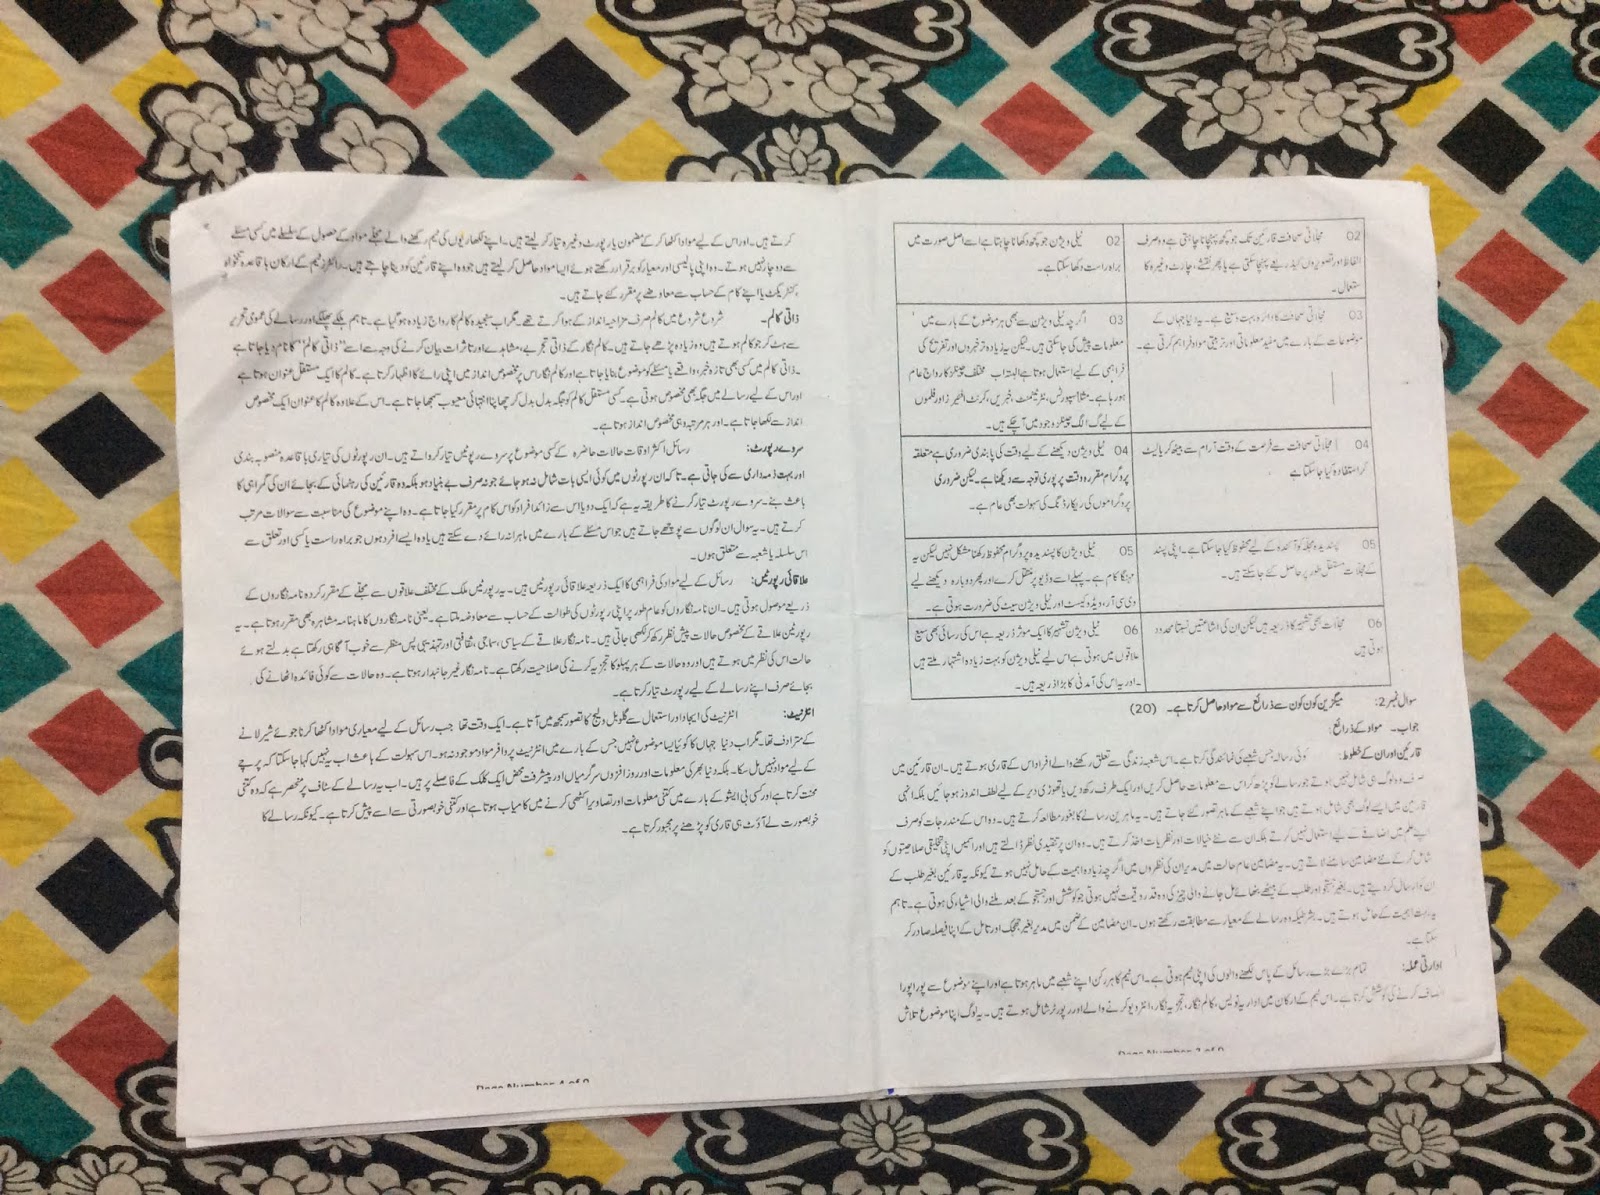 02 مجلاتی صحافت قارئین تک جو کچھ پہنچانا چاہتی ہے وہ صرف
الفاظ اور تصویروں کے ذریعے پہنچا سکتی ہے یا پھر نقشے، چارٹ وغیرہ کا
ستعمال۔
02 ٹیلی ویژن جو کچھ دکھانا چاہتا ہے اسے اصل صورت میں
براہ راست دکھا سکتا ہے۔
03 مجلاتی صحافت کا دائرہ بہت وسیع ہے۔ یہ دنیا جہاں کے
موضوعات کے بارے میں مفید معلوماتی اور تربیتی مواد فراہم کرتی ہے۔
03 اگرچہ ٹیلی ویژن سے بھی ہر موضوع کے بارے میں
معلومات پیش کی جا سکتی ہیں۔ لیکن یہ زیادہ تر خبروں اور تفریح کی
فراہمی کے لیے استعمال ہوتا ہے البتہ اب مختلف چینلز کا رواج عام
ہو رہا ہے۔ مثلاً سپورٹس، نٹرٹینمنٹ، خبریں، کرنٹ افئیرز اور فلموں
کے لیے الگ الگ چینلز وجود میں آچکے ہیں۔
04 مجلاتی صحافت سے فرصت کے وقت آرام سے بیٹھ کر یا لیٹ
کر استفادہ کیا جا سکتا ہے
04 ٹیلی ویژن دیکھنے کے لیے وقت کی پابندی ضروری ہے متعلقہ
پروگرام مقررہ وقت پر پوری توجہ سے دیکھنا ہے۔ لیکن ضروری
پروگراموں کی ریکارڈنگ کی سہولت بھی عام ہے۔
05 پسندیدہ مجلہ کو آئندہ کے لیے محفوظ کیا جا سکتا ہے۔ اپنی پسند
کے مجلات مستقل طور پر حاصل کئے جا سکتے ہیں۔
05 ٹیلی ویژن کا پسندیدہ پروگرام محفوظ رکھنا مشکل نہیں لیکن یہ
مہنگا کام ہے۔ پہلے اسے وڈیو پر منتقل کرے اور پھر دوبارہ دیکھنے لیے
وی سی آر، ویڈیو کیسٹ اور ٹیلی ویژن سیٹ کی ضرورت ہوتی ہے۔
06 مجلات بھی تشہیر کا ذریعہ ہیں لیکن ان کی اشاعتیں نسبتاً محدود
ہوتی ہیں
06 ٹیلی ویژن تشہیر کا ایک موثر ذریعہ ہے اس کی رسائی بھی وسیع
علاقوں میں ہوتی ہے اس لیے ٹیلی ویژن کو بہت زیادہ اشتہار ملتے ہیں
۔اور یہ اس کی آمدنی کا بڑا ذریعہ ہیں۔
سوال نمبر2: میگزین کون کون سے ذرائع سے مواد حاصل کرتا ہے۔ (20)
جواب۔ مواد کے ذرائع:
قارئین اور ان کے خطوط: کوئی رسالہ جس شعبے کی نمائندگی کرتا ہے۔ اس شعبہ زندگی سے تعلق رکھنے والے افراد اس کے قاری ہوتے ہیں۔ ان قارئین میں
صرف وہ لوگ ہی شامل نہیں ہوتے جو رسالے کو پڑھ کر اس سے معلومات حاصل کریں اور ایک طرف رکھ دیں یا تھوڑی دیر کے لیے لطف اندوز ہو جائیں بلکہ انہی
قارئین میں ایسے لوگ بھی شامل ہوتے ہیں جو اپنے شعبے کے ماہر تصور کئے جاتے ہیں۔ یہ ماہرین رسالے کا بغور مطالعہ کرتے ہیں۔ وہ اس کے مندرجات کو صرف
اپنے علم میں اضافے کے لیے استعمال نہیں کرتے بلکہ ان سے نئے خیالات اور نظریات اخذ کرتے ہیں۔ وہ ان پر تنقیدی نظر ڈالتے ہیں اور اس میں اپنی تخلیقی صلاحیتوں کو
شامل کر کے نئے مضامین سامنے لاتے ہیں۔ یہ مضامین عام حالت میں مدیران کی نظروں میں اگرچہ زیادہ اہمیت کے حامل نہیں ہوتے کیونکہ یہ قارئین بغیر طلب کے
ان کو ارسال کر دیتے ہیں۔ بغیر جستجو اور طلب کے بیٹھے بٹھائے مل جانے والی چیز کی وہ قدر و قیمت نہیں ہوتی جو کوشش اور جستجو کے بعد ملنے والی اشیاء کی ہوتی ہے۔ تاہم
یہ بہت اہمیت کے حامل ہوتے ہیں۔ بشرطیکہ وہ رسالے کے معیار سے مطابقت رکھتے ہوں۔ ان مضامین کے ضمن میں مدیر بغیر جھجک اور تامل کے اپنا فیصلہ صادر کر
سکتا ہے۔
ادارتی عملہ: تمام بڑے بڑے رسائل کے پاس لکھنے والوں کی اپنی ٹیم ہوتی ہے۔ اس ٹیم کا ہر رکن اپنے شعبے میں ماہر ہوتا ہے اور اپنے موضوع سے پورا پورا
انصاف کرنے کی کوشش کرتا ہے۔ اس ٹیم کے ارکان میں اداریہ نویس، کالم نگار، تجزیہ نگار، انٹرویو کرنے والے اور رپورٹر شامل ہوتے ہیں۔ یہ لوگ اپنا موضوع تلاش
کرتے ہیں۔ اور اس کے لیے مواد اکٹھا کر کے مضمون یا رپورٹ وغیرہ تیار کر لیتے ہیں۔ اپنے لکھاریوں کی ٹیم رکھنے والے مجلے مواد کے حصول کے سلسلے میں کسی مسئلے
سے دوچار نہیں ہوتے۔ وہ اپنی پالیسی اور معیار کو برقرار رکھتے ہوئے ایسا مواد حاصل کر لیتے ہیں جو وہ اپنے قارئین کو دینا چاہتے ہیں۔ رائٹرز ٹیم کے ارکان باقاعدہ تنخواہ
،کنٹریکٹ یا اپنے کام کے حساب سے معاوضے پر مقرر کئے جاتے ہیں۔
ذاتی کالم۔ شروع شروع میں کالم صرف مزاحیہ انداز کے ہوا کرتے تھے۔ مگر اب سنجیدہ کالم کا رواج زیادہ ہو گیا ہے۔ تاہم ہلکے پھلکے اور رسالے کی عمومی تحریر
سے ہٹ کر جو کالم ہوتے ہیں وہ زیادہ پڑھے جاتے ہیں۔ کالم نگار کے ذاتی تجربے، مشاہدے اور تاثرات بیان کرنے کی وجہ سے اسے "ذاتی کالم" کا نام دیا جاتا ہے
۔ذاتی کالم میں کسی بھی تازہ خبر، واقعے یا مسئلے کو موضوع بنایا جاتا ہے اور کالم نگار اس پر مخصوص انداز میں اپنی رائے کا اظہار کرتا ہے۔ کالم کا ایک مستقل عنوان ہوتا ہے
اور اس کے لیے رسالے میں جگہ بھی مخصوص ہوتی ہے۔ کسی مستقل کالم کو جگہ بدل بدل کر چھاپنا انتہائی معیوب سمجھا جاتا ہے۔ اس کے علاوہ کالم کا عنوان ایک مخصوص
انداز سے لکھا جاتا ہے۔ اور ہر مرتبہ وہی مخصوص انداز ہوتا ہے۔
سروے رپورٹ: رسائل اکثر اوقات حالات حاضرہ کے کسی موضوع پر سروے رپوٹیں تیار کرواتے ہیں۔ ان رپورٹوں کی تیاری باقاعدہ منصوبہ بندی
اور بہت ذمہ داری سے کی جاتی ہے۔ تا کہ ان رپورٹوں میں کوئی ایسی بات شامل نہ ہو جائے جو نہ صرف بے بنیاد ہو بلکہ وہ قارئین کی رہنمائی کے بجائے ان کی گمراہی کا
باعث بنے۔ سروے رپورٹ تیار کرنے کا طریقہ یہ ہے کہ ایک دو یا اس سے زائد افراد کو اس کام پر مقرر کیا جاتا ہے۔ وہ اپنے موضوع کی مناسبت سے سوالات مرتب
کرتے ہیں۔ یہ سوال ان لوگوں سے پوچھے جاتے ہیں جو اس مسئلے کے بارے میں ماہرانہ رائے دے سکتے ہیں یا وہ ایسے افرد ہوں جو براہ راست یا کسی اور تعلق سے
اس سلسلہ یا شعبہ سے متعلق ہوں۔
علاقائی رپورٹیں: رسائل کے لیے مواد کی فراہمی کا ایک ذریعہ علاقائی رپورٹیں ہیں۔ یہ رپورٹیں ملک کے مختلف علاقوں سے مجلے کے مقرر کردہ نامہ نگاروں کے
ذریعے موصول ہوتی ہیں۔ ان نامہ نگاروں کو عام طور پر اپنی رپورٹوں کی طوالت کے حساب سے معاوضہ ملتا ہے۔ یعنی نامہ نگاروں کا ماہانہ مشاہرہ بھی مقرر ہوتا ہے۔ یہ
رپورٹیں علاقے کے مخصوص حالات پیش نظر رکھ کر لکھی جاتی ہیں۔ نامہ نگار علاقے کے سیاسی، سماجی، ثقافتی اور تہذیبی پس منظر سے خوب آگاہی رکھتا ہے بدلتے ہوئے
حالت اس کی نظر میں ہوتے ہیں اور وہ حالات کے ہر پہلو کا تجزیہ کرنے کی صلاحیت رکھتا ہے۔ نامہ نگار غیر جانبدار ہوتا ہے۔ وہ حالات سے کوئی فائدہ اٹھانے کی
بجائے صرف اپنے رسالے کے لیے رپورٹ تیار کرتا ہے۔
انٹرنیٹ: انٹرنیٹ کی ایجاد اور استعمال سے گلوبل ولیج کا تصور سمجھ میں آتا ہے۔ ایک وقت تھا جب رسائل کے لیے معیاری مواد اکٹھا کرنا جوئے شیر لانے
کے مترادف تھا۔ مگر اب دنیا جہاں کا کوئی ایسا موضوع نہیں جس کے بارے میں انٹرنیٹ پر وافر مواد موجود نہ ہو۔ اس سہولت کے باعث اب یہ نہیں کہا جا سکتا کہ پرچے
کے لیے مواد نہیں مل سکا۔ بلکہ دنیا بھر کی معلومات اور روز افزوں سرگرمیاں اور پیشرفت محض ایک کلک کے فاصلے پر ہیں۔ اب یہ رسالے کے سٹاف پر منحصر ہے کہ وہ کتنی
محنت کرتا ہے اور کسی بی ایشو کے بارے میں کتنی معلومات اور تصاویر اکٹھی کرنے میں کامیاب ہوتا ہے اور کتنی خوبصورتی سے اسے پیش کرتا ہے۔ کیونکہ رسالے کا
خوبصورت لے آؤٹ ہی قاری کو پڑھنے پر مجبور کرتا ہے۔